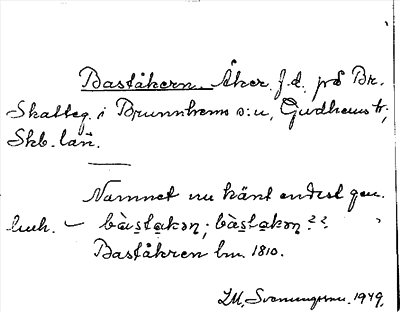 Baståkern. Åker f.d. på Br.
Skatteg. i Brunnhems s:n, Gudhems hd,
Skb. län.
Namnet nu känt endast gen.
luh. – bàs̲ta̲kən; bàs̲ta̲kən??
Baståkren lm. 1810.
1949.